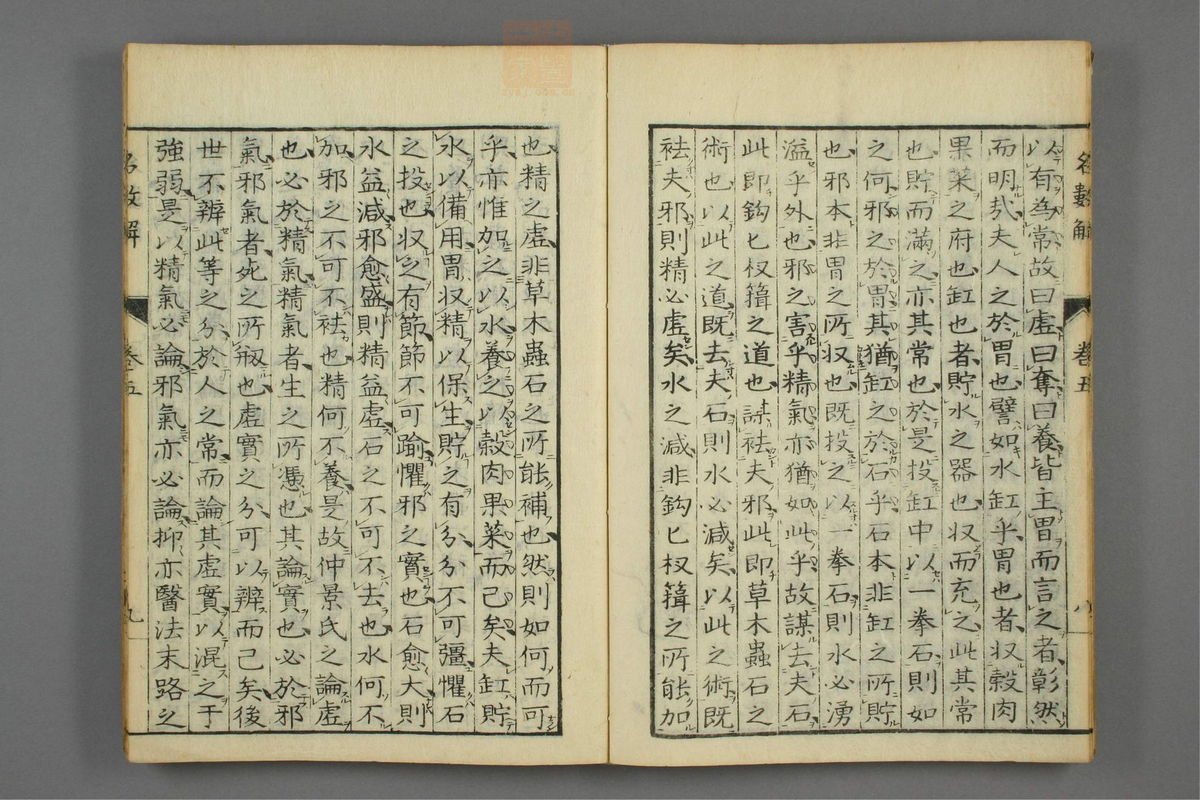 以有為常故曰虛曰奪曰養皆主胃而言之者彰然
而明哉夫人之於胃也譬如水缸乎胃也者収穀肉
果菜之府也缸也者貯水之器也収而充之此其常
也貯而滿之亦其常也於是投缸中以一拳石則如
之何邪之於胃其猶缸之於石乎石本非缸之所貯
也邪本非胃之所収也既投之以一拳石則水必湧
溢乎外也邪之害乎精氣亦猶如此乎故謀去夫石
此即鈎匕杈簎之道也謀祛夫邪此即草木蟲石之
術也以此之道既去夫石則水必減矣以此之術既
祛夫邪則精必虛矣水之減非鈎匕杈簎之所能加
名數解 卷五 八
也精之虛非草木蟲石之所能補也然則如何而可
乎亦惟加之以水養之以穀肉果菜而已矣夫缸貯
水以備用胃収精以保生貯之有分分不可彊懼石
之投也収之有節節不可踰懼邪之實也石愈大則
水益減邪愈盛則精益虛石之不可不去也水何不
加邪之不可不祛也精何不養是故仲景氏之論虛
也必於精氣精氣者生之所憑也其論實也必於邪
氣邪氣者死之所㧞也虛實之分可以辨而已矣後
世不辨此等之分於人之常而論其虛實以混之于
強弱是以精氣必論邪氣亦必論抑亦醫法末路之
名數解 卷五 九